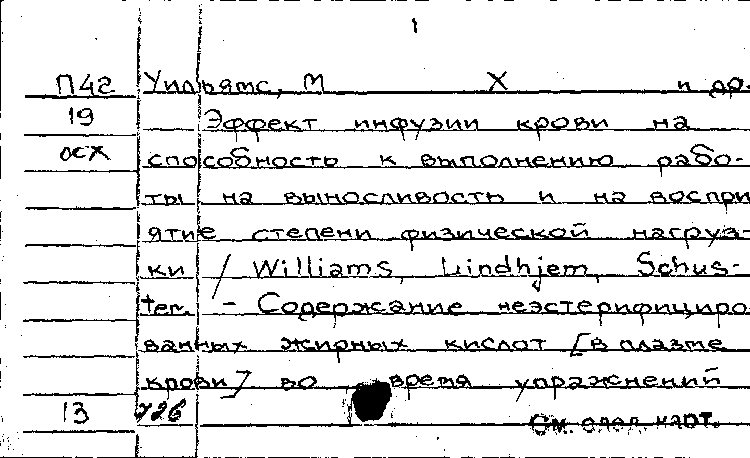 1
П42 Уильямс, М Х и др.
19 Эффект инфузии крови на
осх способность к выполнению рабо-
ты на выносливость и на воспри
ятие степени физической нагруз-
ки / Williams, Lindhjem, Schus-
ter. - Содержание неэстерифициро
ванных жирных кислот [в плазме
крови] во время упражнений
13 726 См. след. карт.